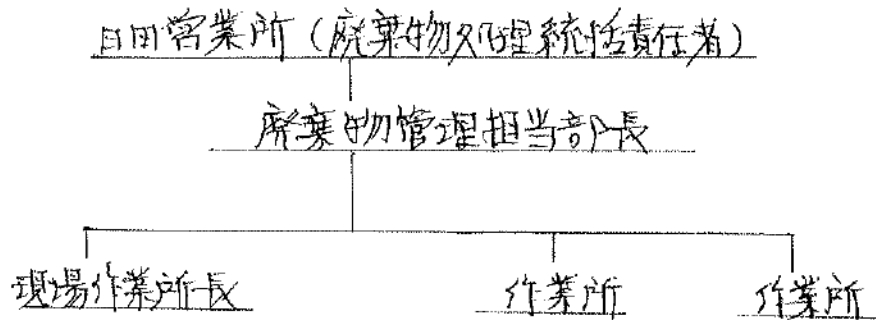 日田営業所(廃棄物処理統括責任者)
廃棄物管理担当部長
現場作業所長 作業所 作業所